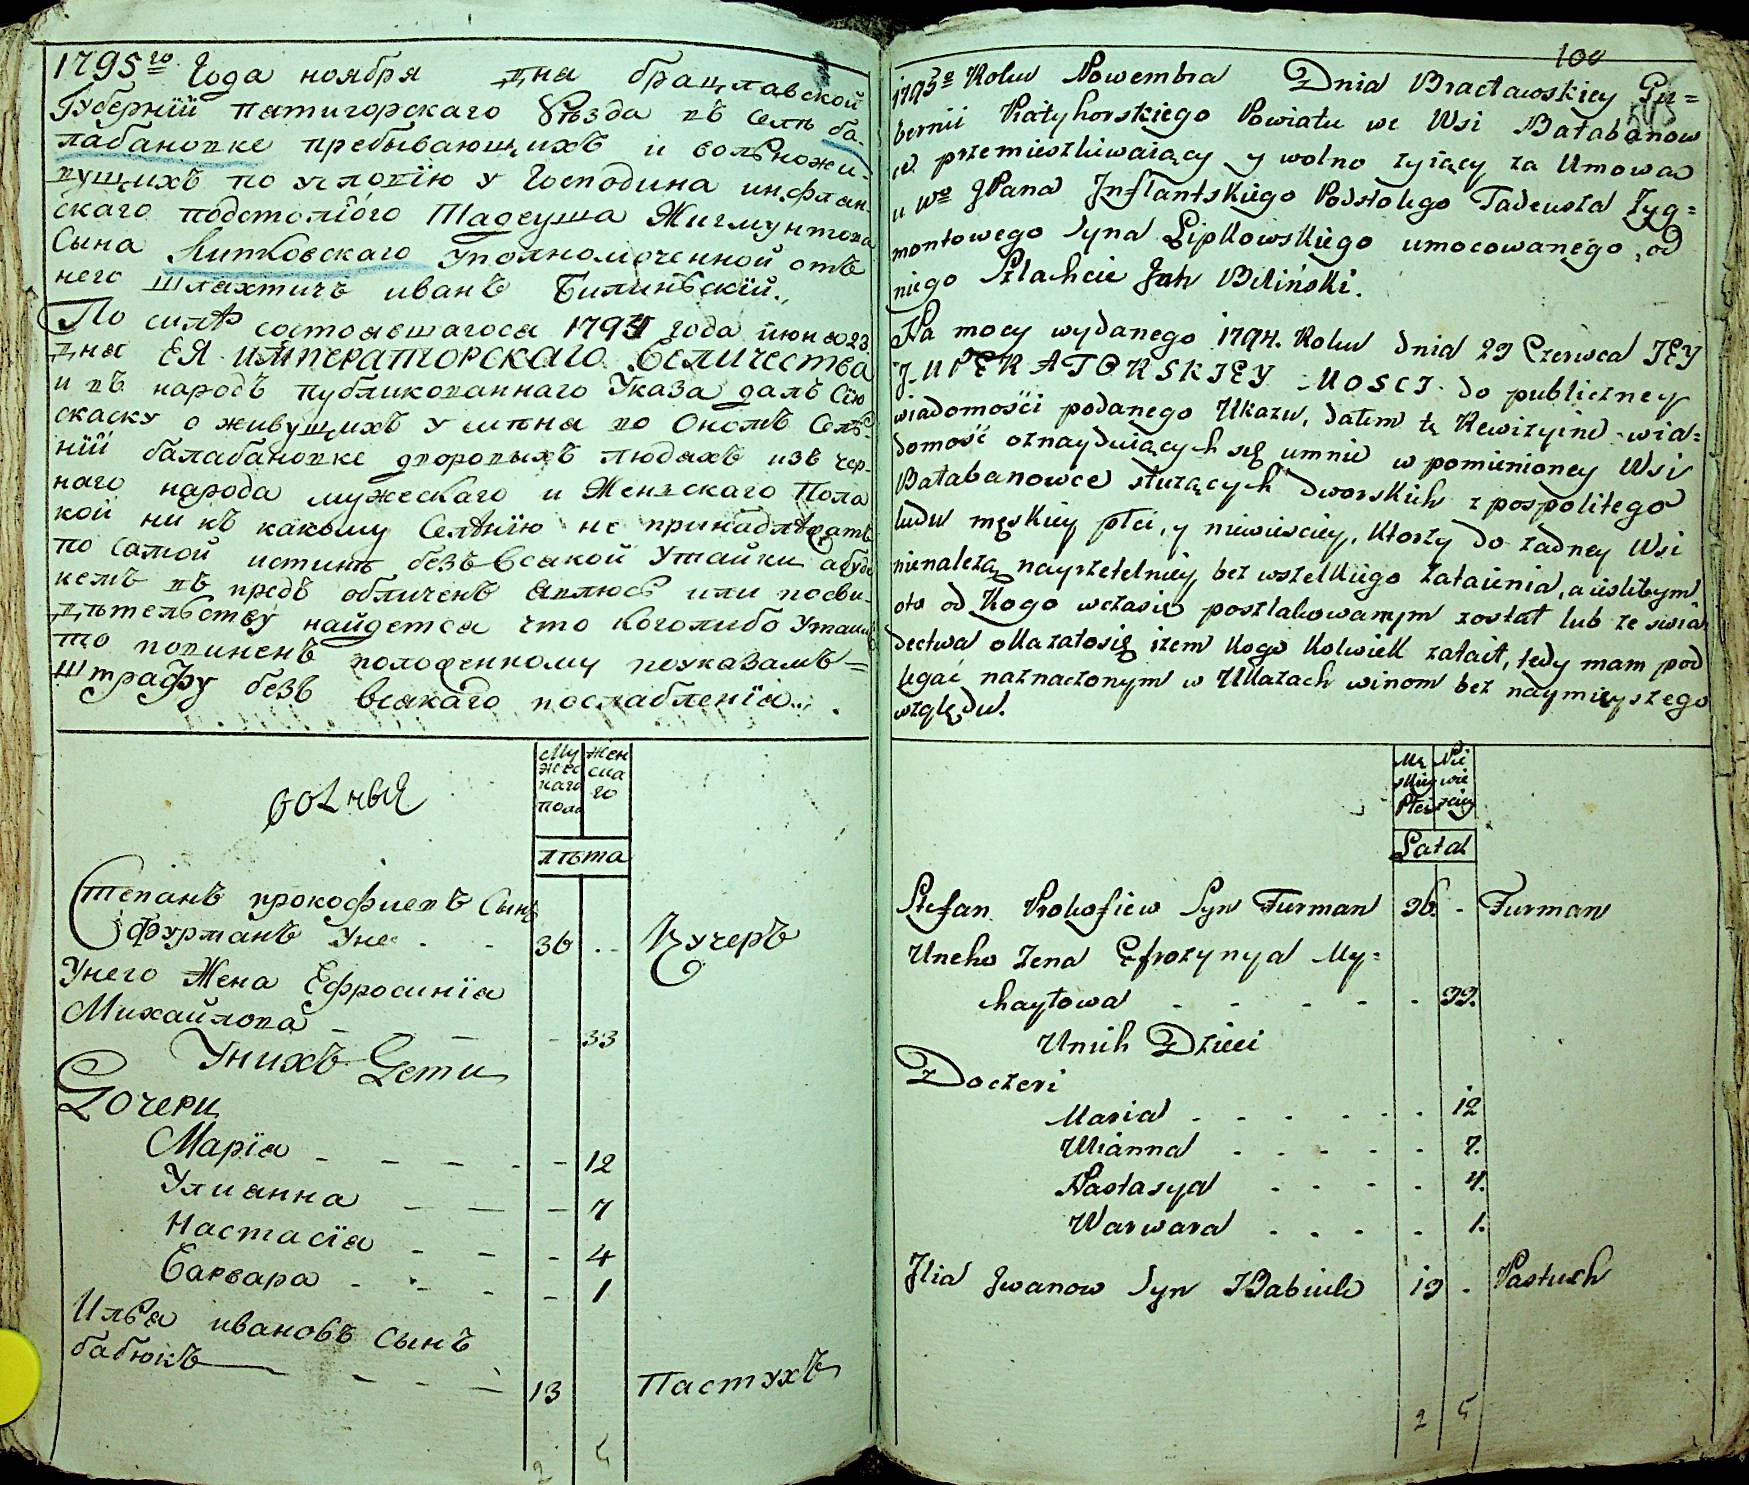 1795го Года ноября дна брацлавской
Губернїй пятигорскаго Уѣзда въ Селѣ ба-
лабановке пребывающихъ и вольножи-
вущихъ по условію у Господина инфлян-
скаго подстолїого Тадеуша Жигмунтова
Сына Липковскаго уполномоченной отъ
него шляхтичъ иванъ Билинъскїй.
По силѣ состоявшагося 1794 года июня 23
дня ЕЯ императорскаго величества
и въ народъ публикованнаго Указа далъ Сїю
скаску о живущихъ у меня во Ономъ Селе-
нїй балабановке дворовыхъ людяхъ изъ чер-
наго народа мужескаго и Женъскаго Пола
кой ни къ какому Селѣнїю не принадлежатъ
по самой истинѣ безъ всякой Утайки а буде
кемъ въ предъ обличенъ явлюсь или посви-
дѣтельству найдется что коголибо Утаилъ
то повиненъ положенному поуказамъ=
Штрафу безъ всякаго послабленїя.
вольныя
Му жен
жес ска
каго го
пола
лѣта
Степанъ прокофиевъ Сынъ
Фурманъ Уне 36 Кучеръ
Унего Жена Ефросинїа
Михайлова 33
Унихъ Дети
Дочери
Марїа 12
Улианна 7
Настасїа 4
Варвара 1
Илья ивановъ Сынъ
бабюкъ 13 Пастухъ
2 5
100
1795o Roku Nowembra Dnia Bracławskiey Gu=
bernii Piatyhorskiego Powiatu we Wsi Bałabanow
ce przemieszkiwaiący y wolno żyiący za Umową
u Wo JPana Inflantskiego Podstolego Tadeusza Zyg=
montowego Syna Lipkowskiego umocowanego od
niego Szlahcic Jan Biliński.
Na mocy wydanego 1794. Roku dnia 23 Czerwca JEY
IMPERATORSKIEY MOSCI do publiczney
wiadomości podanego Ukazu, dałem tę Rewizyiną wia=
domość oznayduiących się umnie w pomienioney Wsi
Bałabanowce służących dworskich z pospolitego
ludu męskiey płci, y niewieściey, ktorzy do żadney Wsi
nienależą nayrzetelniey bez wszelkiego zataienia, a ieslibym
oto od kogo wczasie poszlakowanym został lub ze swia
dectwa okazałosię iżem kogo kolwiek zataił, tedy mam pod
legać naznaczonym w Ukazach winom bez naymnieyszego
względu.
Mę Nie
skiey wie
Płci sciey
Lata
Stefan Prokofiew Syn Furman 36 Furman
Uneho Zena Efrozynya My=
chayłowa 33.
Unich Dzieci
Doczeri
Maria 12
Ulianna 7.
Nastasya 4.
Warwara 1.
Ilia Iwanow Syn Babiuk 13 Pastuch
2 5